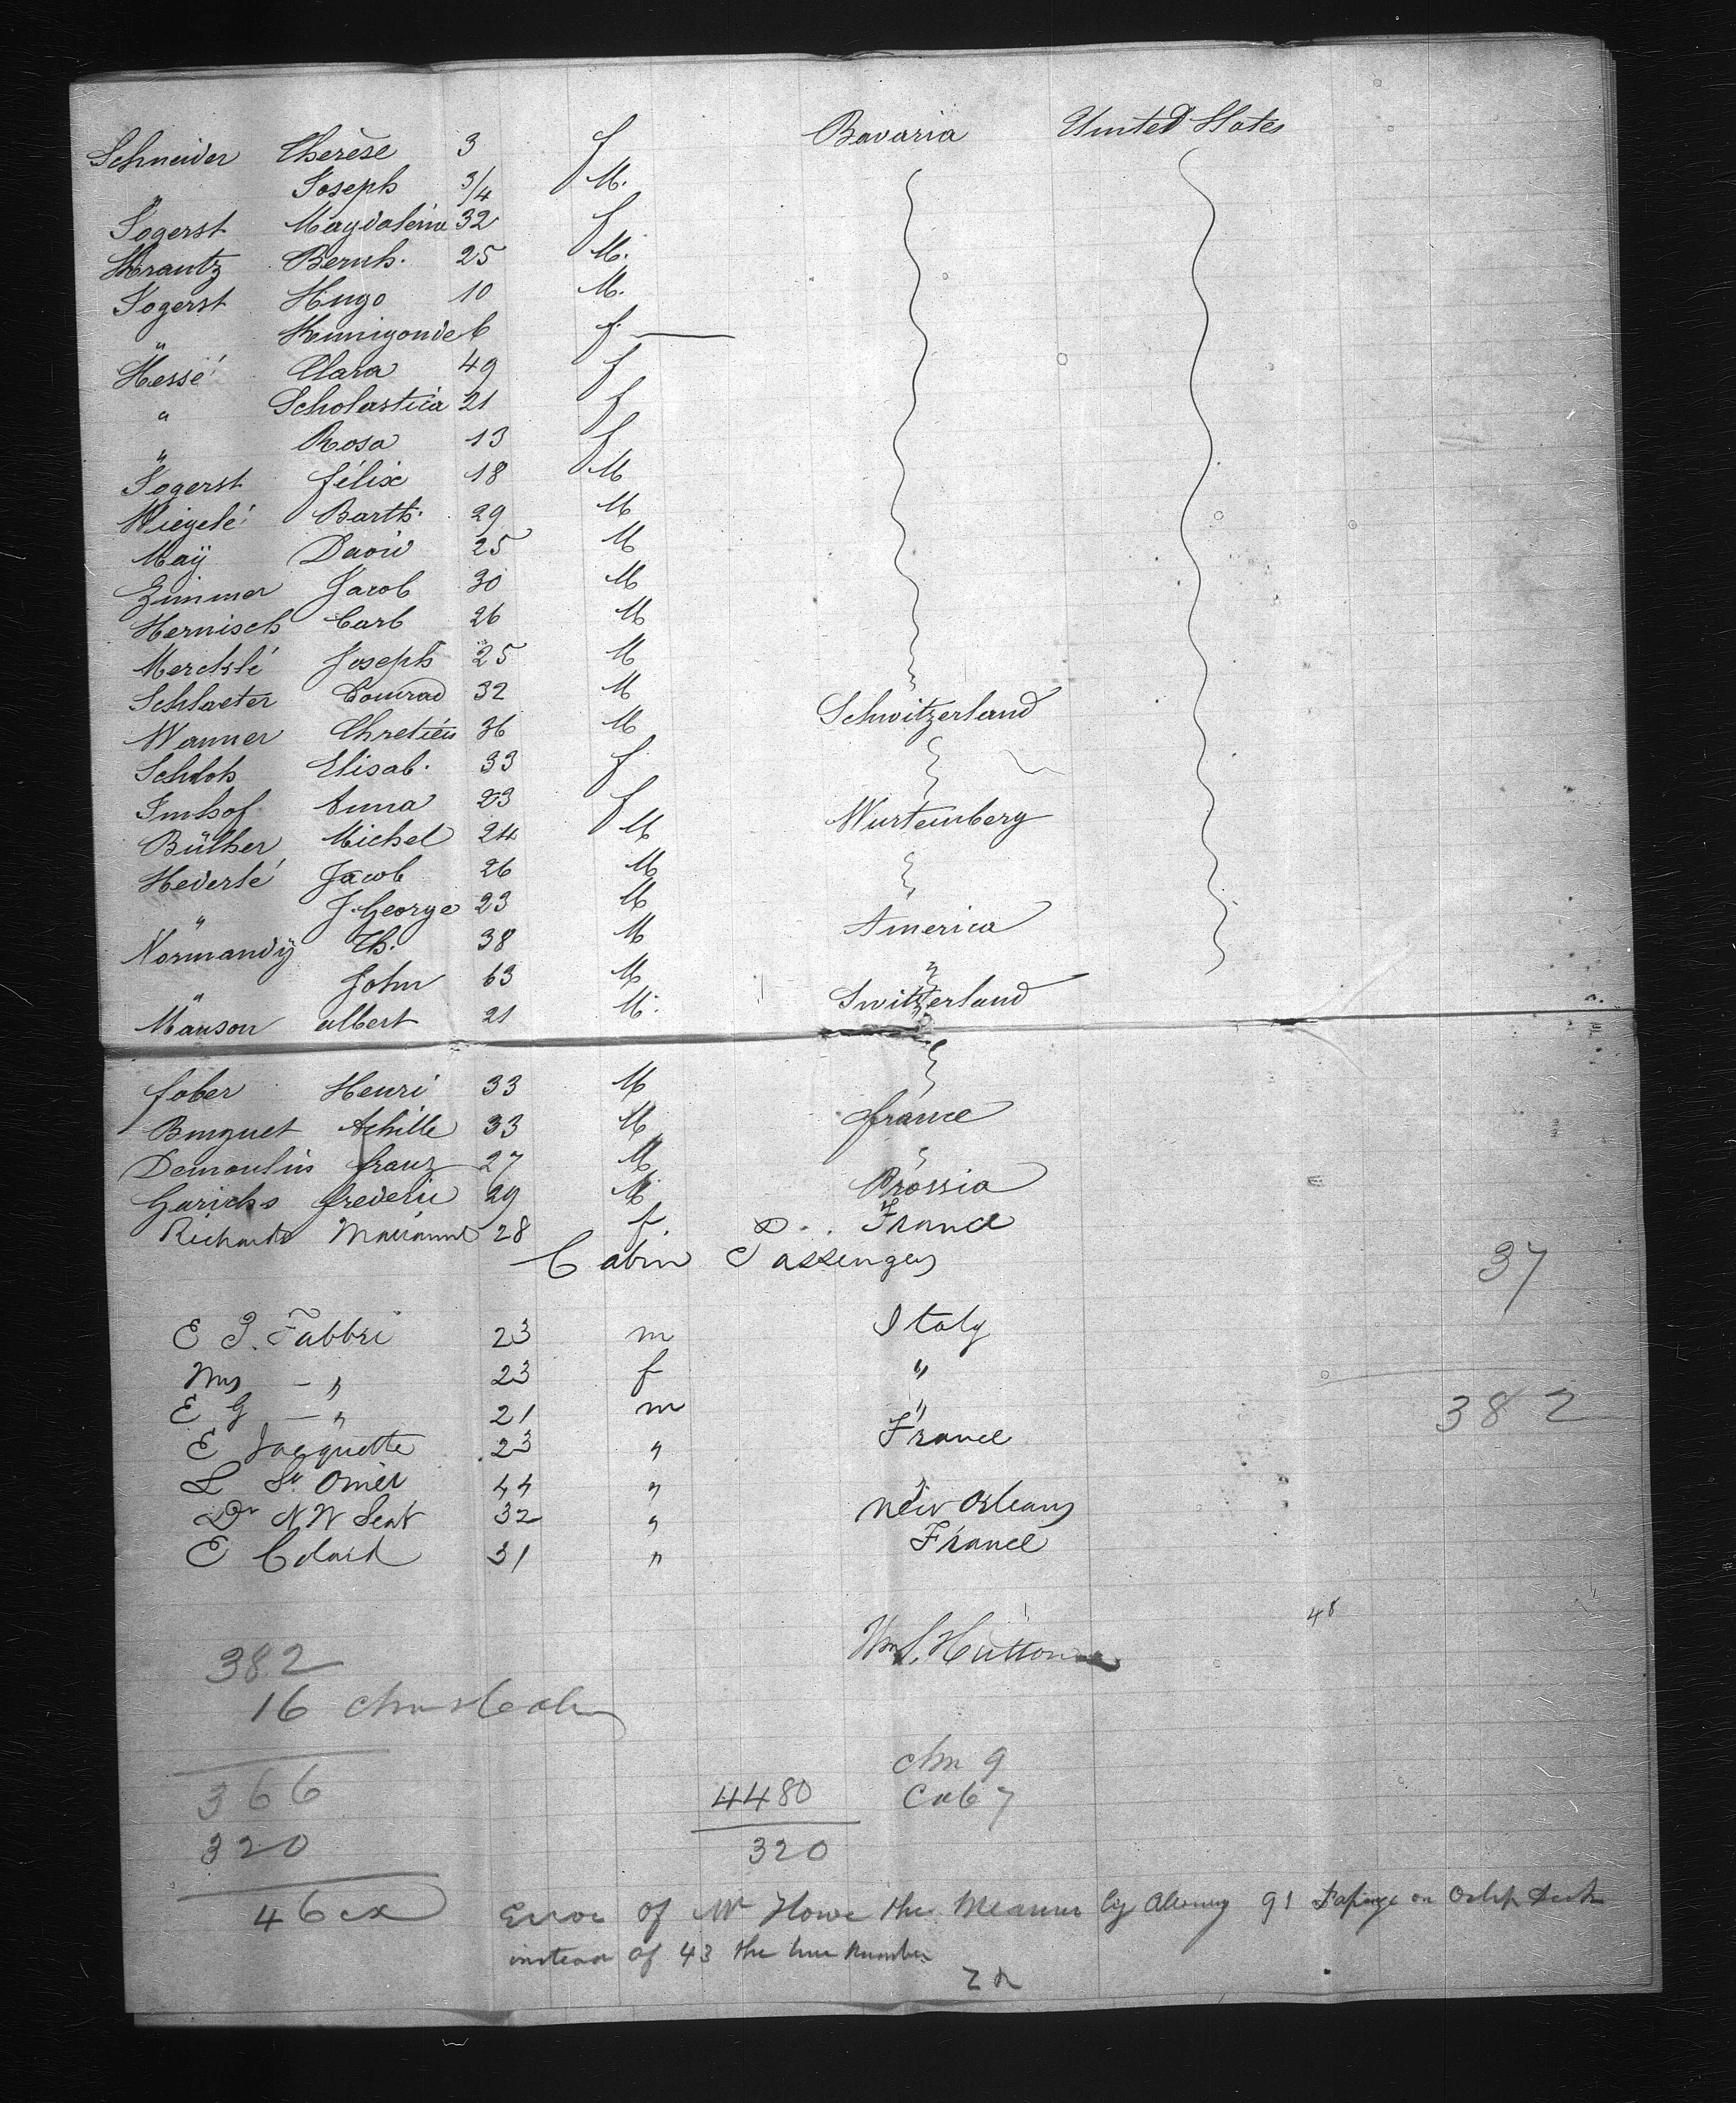 Schneider Therèse 3 f Bavaria United States
" Joseph 3/4 M.
Jogerst Magdaléna 32 f
Krantz Bernh. 25 M.
Jogerst Hugo 10 M.
" Kunigonde 6 f.
Hessé Clara 49 f
" Scholastica 21 f
" Rosa 13 f
Jogerst félix 18 M
Wiegelé Barth. 29 M
Maÿ David 25 M
Zimmer Jacob 30 M
Hernisch Carl 26 M
Mercklé Joseph 25 M
Schlaeter Conrad 32 M
Wanner Chretién 36 M Schwitzerland
Schloh Elisab. 33 f
Imhof Anna 23 f
Bülher Michel 24 M Wurtemberg
Hederlé Jacob 26 M
" J. George 23 M
Normandÿ Th. 38 M America
" John 63 M
Manson albert 21 M. Switzerland
fober Henri 33 M
Binguet Achille 33 M france
Demoulins franz 27 M
Garichs frederic 29 M Prossia
Richards Marianne 28 f. France
Cabin Passengers 37
E P. Fabbri 23 m Italy
Mrs — " 23 f "
E G — " 21 m "
382
E Jacquette 23 " France
L St. Omer 44 " "
Dr N W Seat 32 " New Orleans
E Colard 31 " France
48
Wm S. Hutton
382
16
366
320
46 ex
chn 9
Cab 7
4480
320
Error of Mr Howe the Measurer by allowing 91 on Orlop Deck
instead of 43 the true number